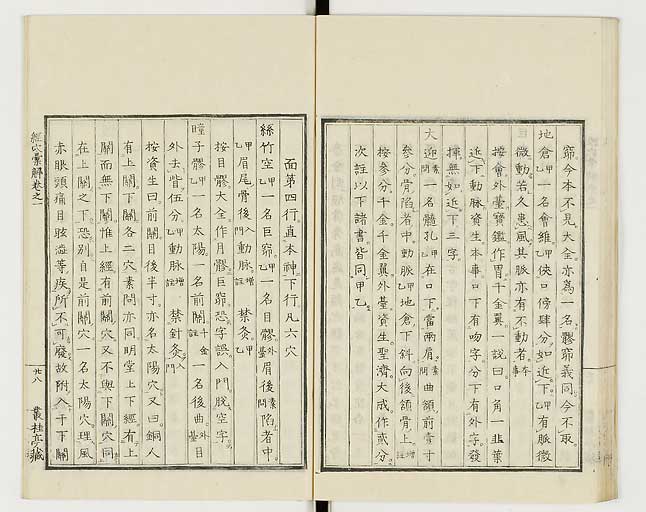 窌今本不見大全亦為一名髎窌義同今不取
地倉甲乙一名會維甲乙俠口傍四分如近下甲乙有脈微
微動若久患風其脈亦有不動者
按會外臺寶鑑作胃千金翼一說曰口角一韭葉
近下動脈資生本事口下有吻字分下有外字發
揮無如近下三字
大迎素問一名髓孔甲乙在口下當兩眉素問曲頷前壹寸
參分骨陷者中動脈甲乙地倉下斜向後頷骨上增註
按參分千金千金翼外臺資生聖濟大成作貳分
次註以下諸書皆同甲乙
面第四行直本神下行凡六穴
絲竹空甲乙一名巨窌甲乙一名目髎外臺眉後素問陷者中
甲乙眉尾骨後入門動脈增註禁灸甲乙
按目髎大全作月髎巨窌恐字誤入門脫空字
瞳子髎甲乙一名太陽一名前關千金註一名後曲外臺目
外去眥伍分甲乙動脈增註禁針灸入門
按資生曰前關目後半寸亦名太陽穴又曰銅人
有上關下關各二穴素問亦同明堂上下經有上
關而無下關惟上經有前關穴又不與下關穴同
在上關之下恐別自是前關穴一名太陽穴理風
赤眼頭痛目眩澁等疾所不可廢故附入于下關
經穴彙解卷之一
廿八
叢桂亭藏